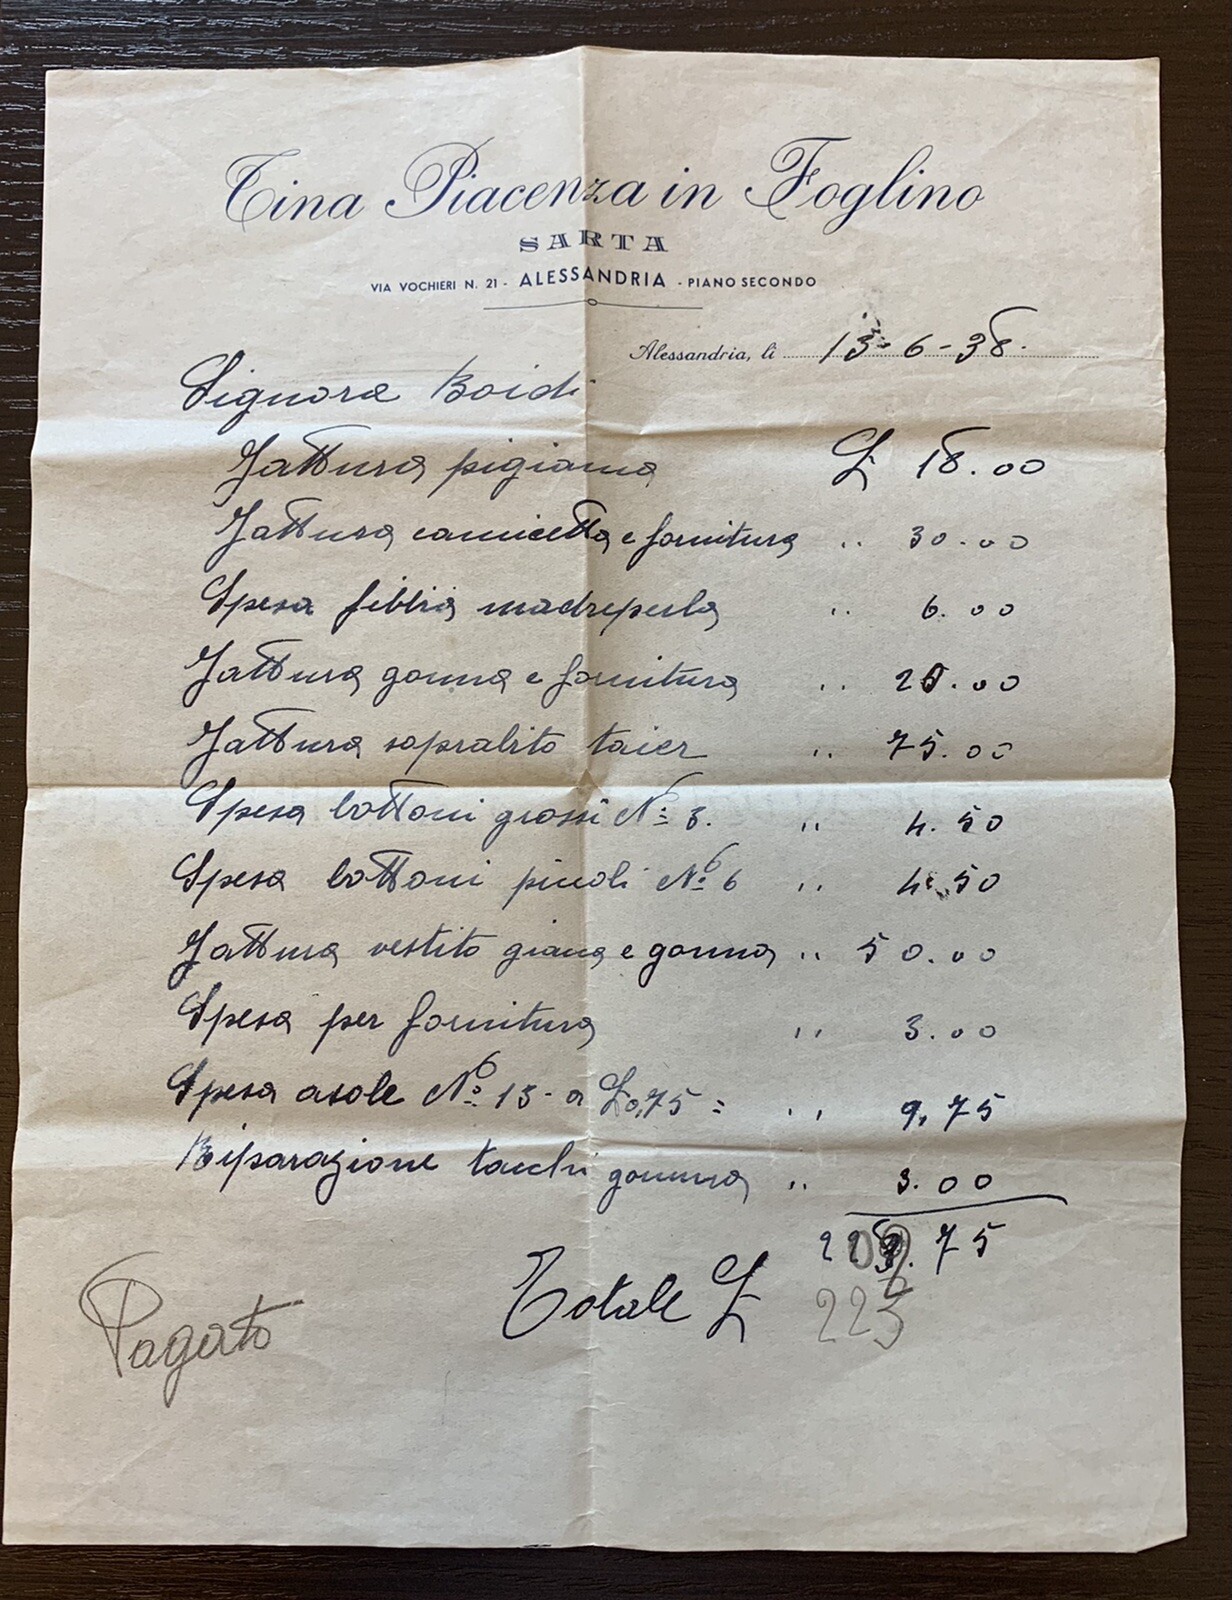 Tina Piacenza in Foglino
SARTA
VIA VOCHIERI N. 21 - ALESSANDRIA - PIANO SECONDO
Alessandria, li 13-6-38.
Signora Boidi
Fattura pigiama £ 18.00
Fattura camicetta e fornitura " 30.00
Spesa fibbia madreperla " 6.00
Fattura gonna e fornitura " 20.00
Fattura soprabito taier " 75.00
Spesa bottoni grossi No 3. " 4.50
Spesa bottoni picoli No 6 " 4.50
Fattura vestito giacca e gonna " 50.00
Spesa per fornitura " 3.00
Spesa asole No 13 - a £0,75 = " 9,75
Riparazione tacchi gomma " 3.00
75
Totale £ 223
Pagato